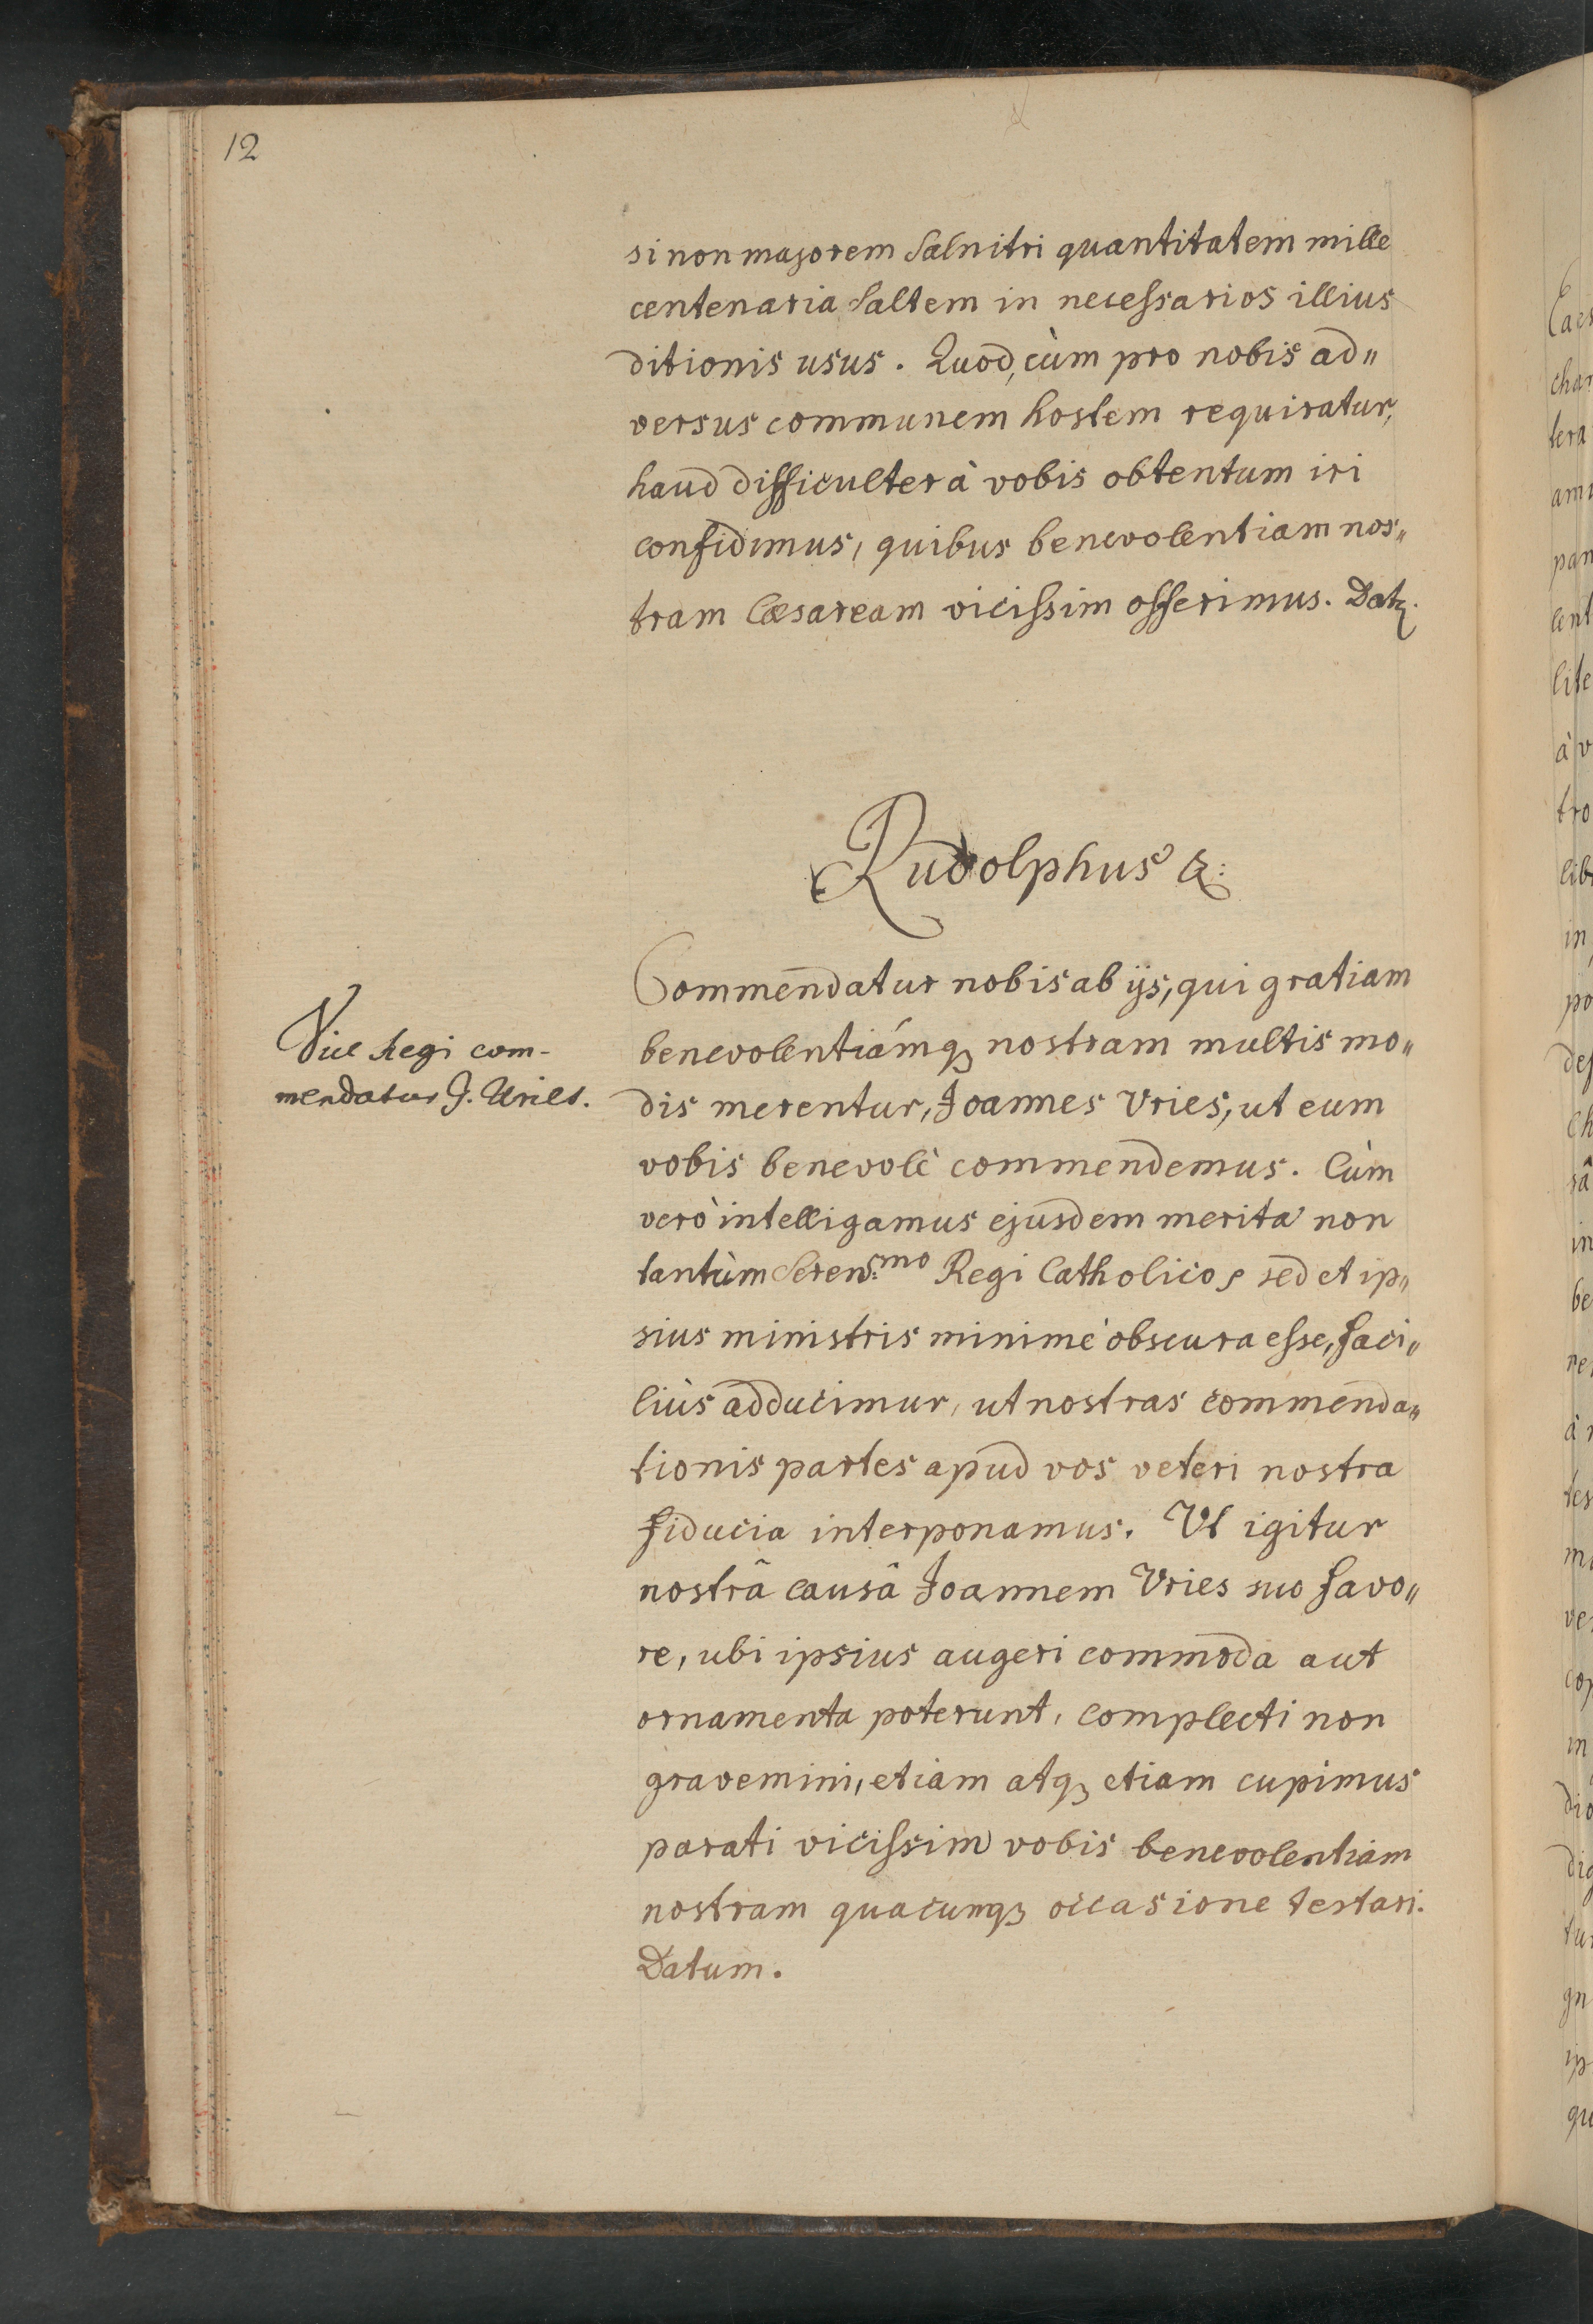 12
si non majorem Salnitri quantitatem mille
centenaria Saltem in necessarios illius
ditionis usus. Quod, cùm pro nobis ad„
versus communem hostem requiratur,
haud difficulter à vobis obtentum iri
confidimus, quibus benevolentiam nos„
tram Cæsaream vicissim offerimus. Datz.
Rudolphus &:
Commendatur nobis ab ijs, qui gratiam
Vice Regi com-
mendatur J. Uries.
benevolentiámq₃ nostram multis mo„
dis merentur, Joannes Vries, ut eum
vobis benevolè commendemus. Cùm
verò intelligamus ejusdem merita non
tantùm Seren:mo Regi Catholico, sed et ip„
sius ministris minimè obscura esse, faci„
liùs adducimur, ut nostras commenda„
tionis partes apud vos veteri nostra
fiducia interponamus. Vt igitur
nostrâ causâ Joannem Vries suo favo„
re, ubi ipsius augeri commoda aut
ornamenta poterunt, complecti non
gravemini, etiam atq₃ etiam cupimus
parati vicissim vobis benevolentiam
nostram quacunq₃ occasione testari.
Datum.